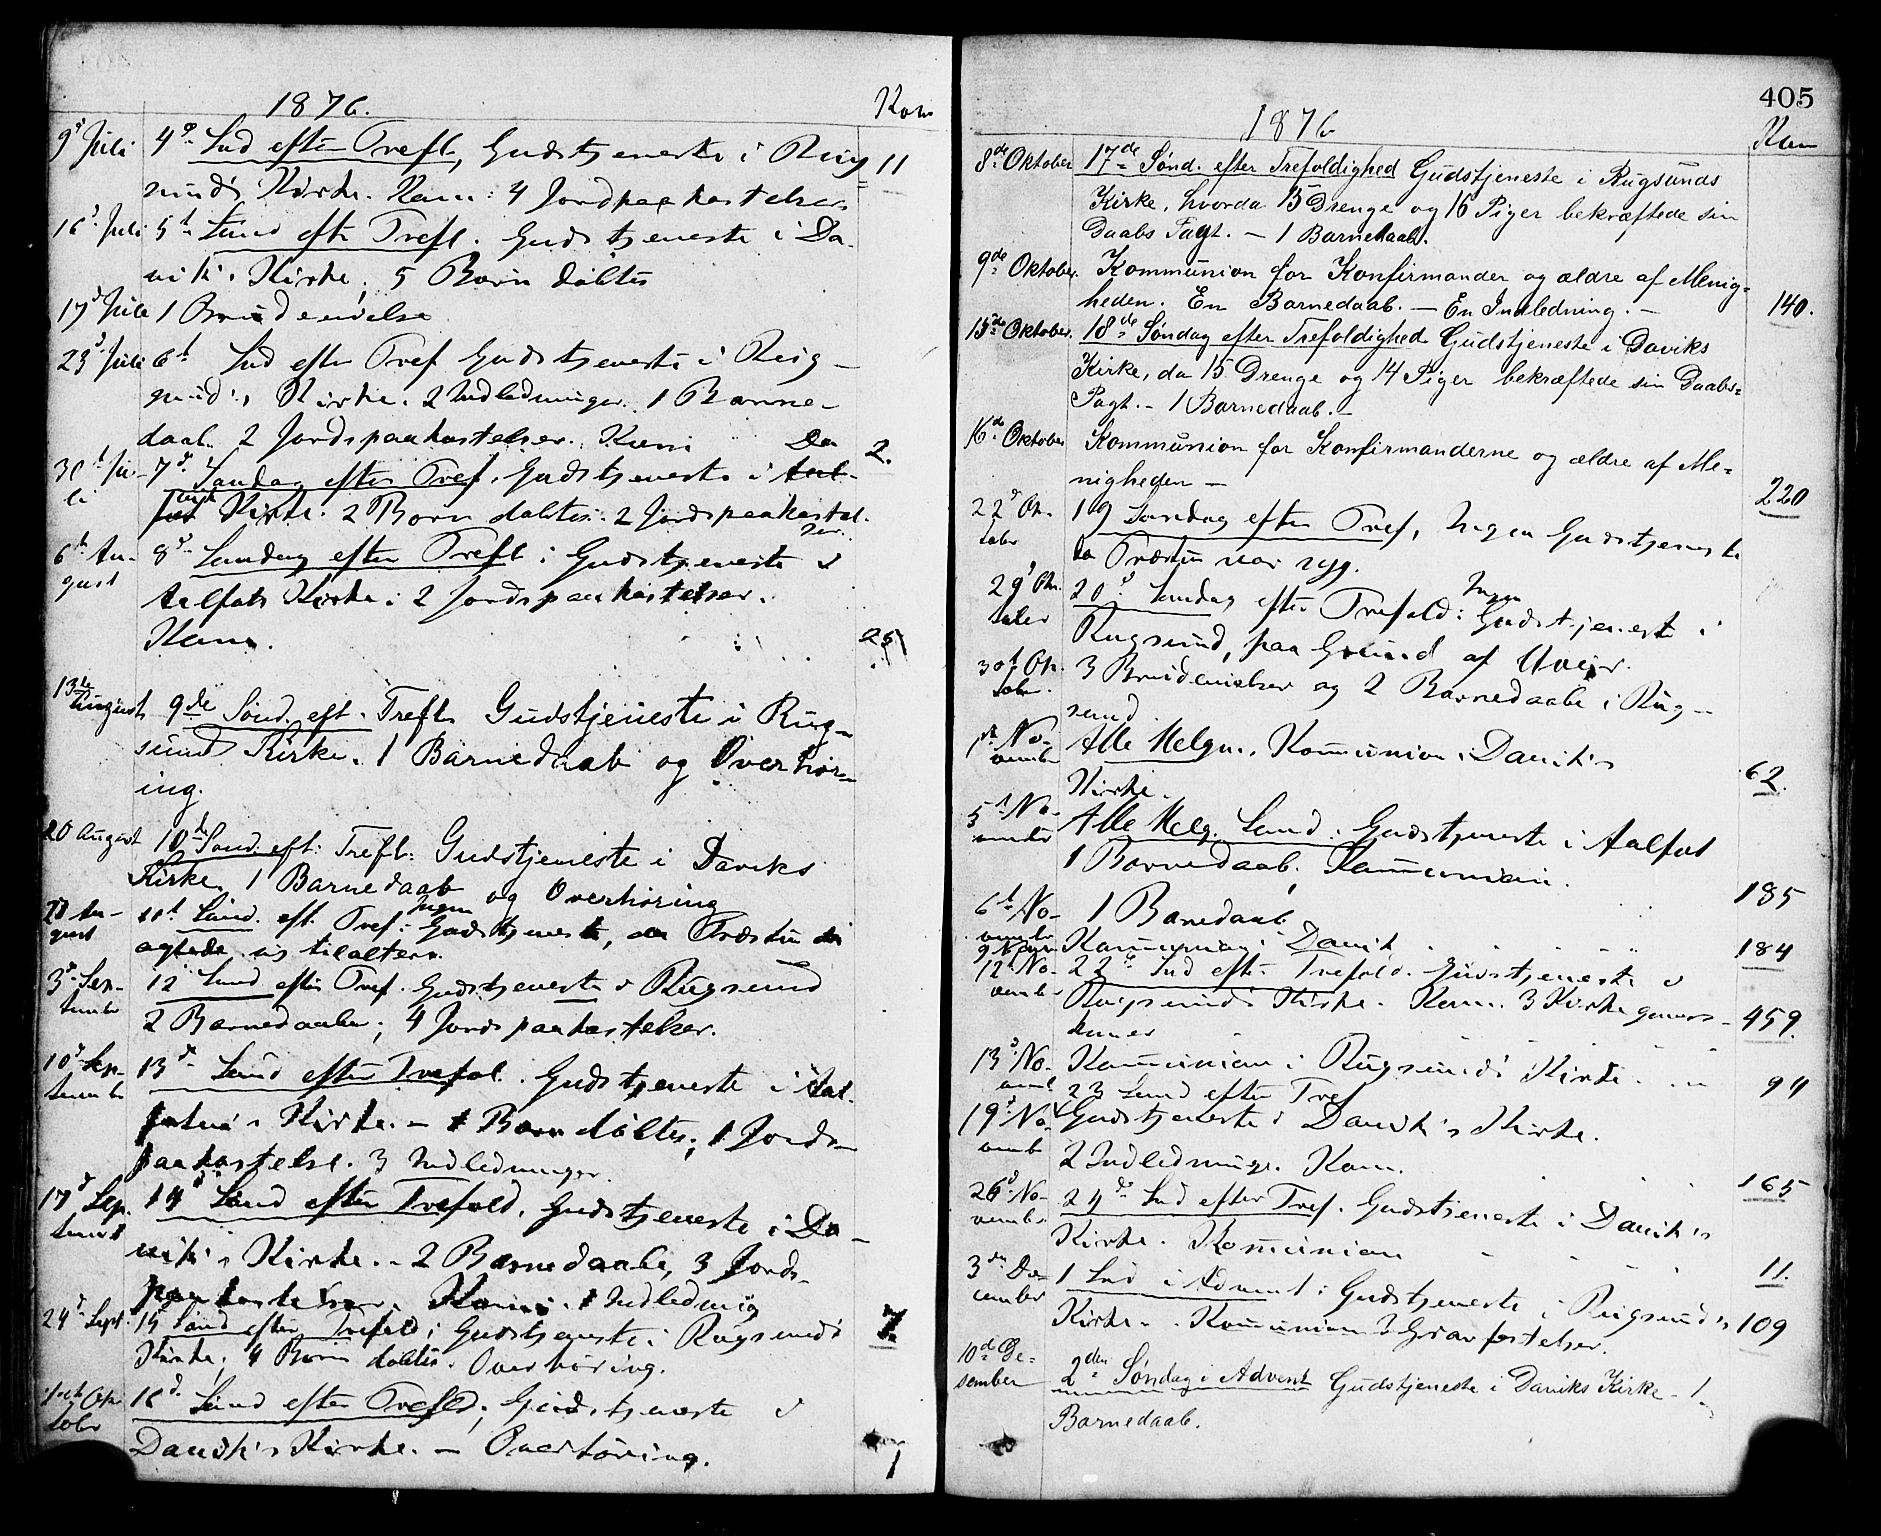 1876.
Kom
9d Juli 4de Snd efter Trefl, Gudstjeneste i Rug 11
sunds Kirke. Kom: 4 Jordpaakastelser
16d Juli 5t Sund eft Trefl. Gudstjeneste i Da-
viks Kirke; 5 Børn døbtes
17d Juli 1 Brudevielse
23d Juli 6t Snd efter Tref Gudstjeneste i Rug-
sunds Kirke. 2 Indledninger. 1 Barne-
daab. 2 Jordspaakastelser. Kom 2.
30t Ju- 7d Søndag efter Tref. Gudstjeneste i Aal- Da
li
fot vik Kirke. 2 Børn døbtes. 2 Jordspaakastel-
ser.
6t Au- 8d Søndag efter Trefl: Gudstjeneste i
gust
Aalfots Kirke: 2 Jordspaakastelser.
Kom. 25
13de August 9de Sønd. eft. Trefl. Gudstjeneste i Rug-
sunds Kirke. 1 Barnedaab og Overhør-
ing.
20 August 10de Sønd. eft: Trefl: Gudstjeneste i Daviks
Kirke. 1 Barnedaab og Overhøring
27 Au- 11t Sønd. eft. Tref: Ingen Gudstjeneste, da Præsten
gust
agtede sig tilalters.
3d Sep- 12 Sønd efter Tref. Gudstjeneste i Rugsund
tember
2 Barnedaabe; 4 Jordspaakastelser.
10d Sep- 13d Sønd efter Trefol. Gudstjeneste i Aal-
tember
fotens Kirke. - 1 Barn døbtes; 1 Jords-
paakastelse. 3 Indledninger.
17d Sep. 14d Sønd efter Trefold. Gudstjeneste i Da-
tember
viks Kirke. - 2 Barnedaabe, 3 Jords-
paakastelser. Kom. 1 Indledning
24d Sept. 15 Sønd efter Trefold; Gudstjeneste i Rugsunds 7
Kirke; 4 Børn døbtes. Overhøring.
1st Ok- 16d Sønd efter Trefld; Gudstjeneste i
tober
Daviks Kirke. - Overhøring.
405
1876
Kom
8de Oktober 17de Sønd. efter Trefoldighed Gudstjeneste i Rugsunds
Kirke, hvorda 15 Drenge og 16 Piger bekræftede sin
Daabs Pagt. - 1 Barnedaab.
9de Oktober. Kommunion for Konfirmander og ældre af Menig-
heden. En Barnedaab. - En Indledning. - 140.
15de Oktober. 18de Søndag efter Trefoldighed Gudstjeneste i Daviks
Kirke, da 15 Drenge og 14 Piger bekræftede sin Daabs-
Pagt. - 1 Barnedaab. -
16de Oktober Kommunion for Konfirmanderne og ældre af Me-
nigheden - 220
22d Ok- 19 Søndag efter Tref, Ingen Gudstjeneste
tober
da Præsten var syg.
29d Ok- 20d Søndag efter Trefold: Ingen Gudstjeneste i
tober
Rugsund, paa Grund af Uveir.
30t Ok- 3 Brudevielser og 2 Barnedaabe i Rug-
tober.
sund.
1st No- Alle Helgn. Kommunion i Daviks
vember
Kirke. 62.
5t No- Alle Helg. Sønd. Gudstjeneste i Aalfot
vember
1 Barnedaab. Kommunion. 185
6t No- 1 Barnedaab
vember
9 Novem Kommunion i Davik 184
12t No- 22d Snd efter Trefold. Gudstjeneste i
vember
Rugsunds Kirke. Kom. 3 Kirkegangs- 459.
koner
13d No- Kommunion i Rugsunds Kirke. 94
vemb
23 Sund efter Tref
19d No- Gudstjeneste i Daviks Kirke.
vemb
2 Indledninge. Kom. 165
26d No- 24d Snd efter Tref. Gudstjeneste i Daviks
vembr
Kirke. Kommunion 11.
3de De- 1 Snd i Advent: Gudstjeneste i Rugsunds
cember
Kirke. - Kommunion 3 Gravfæstelser. 109
10de De- 2den Søndag i Advent Gudstjeneste i Daviks Kirke - 1
sember
Barnedaab.